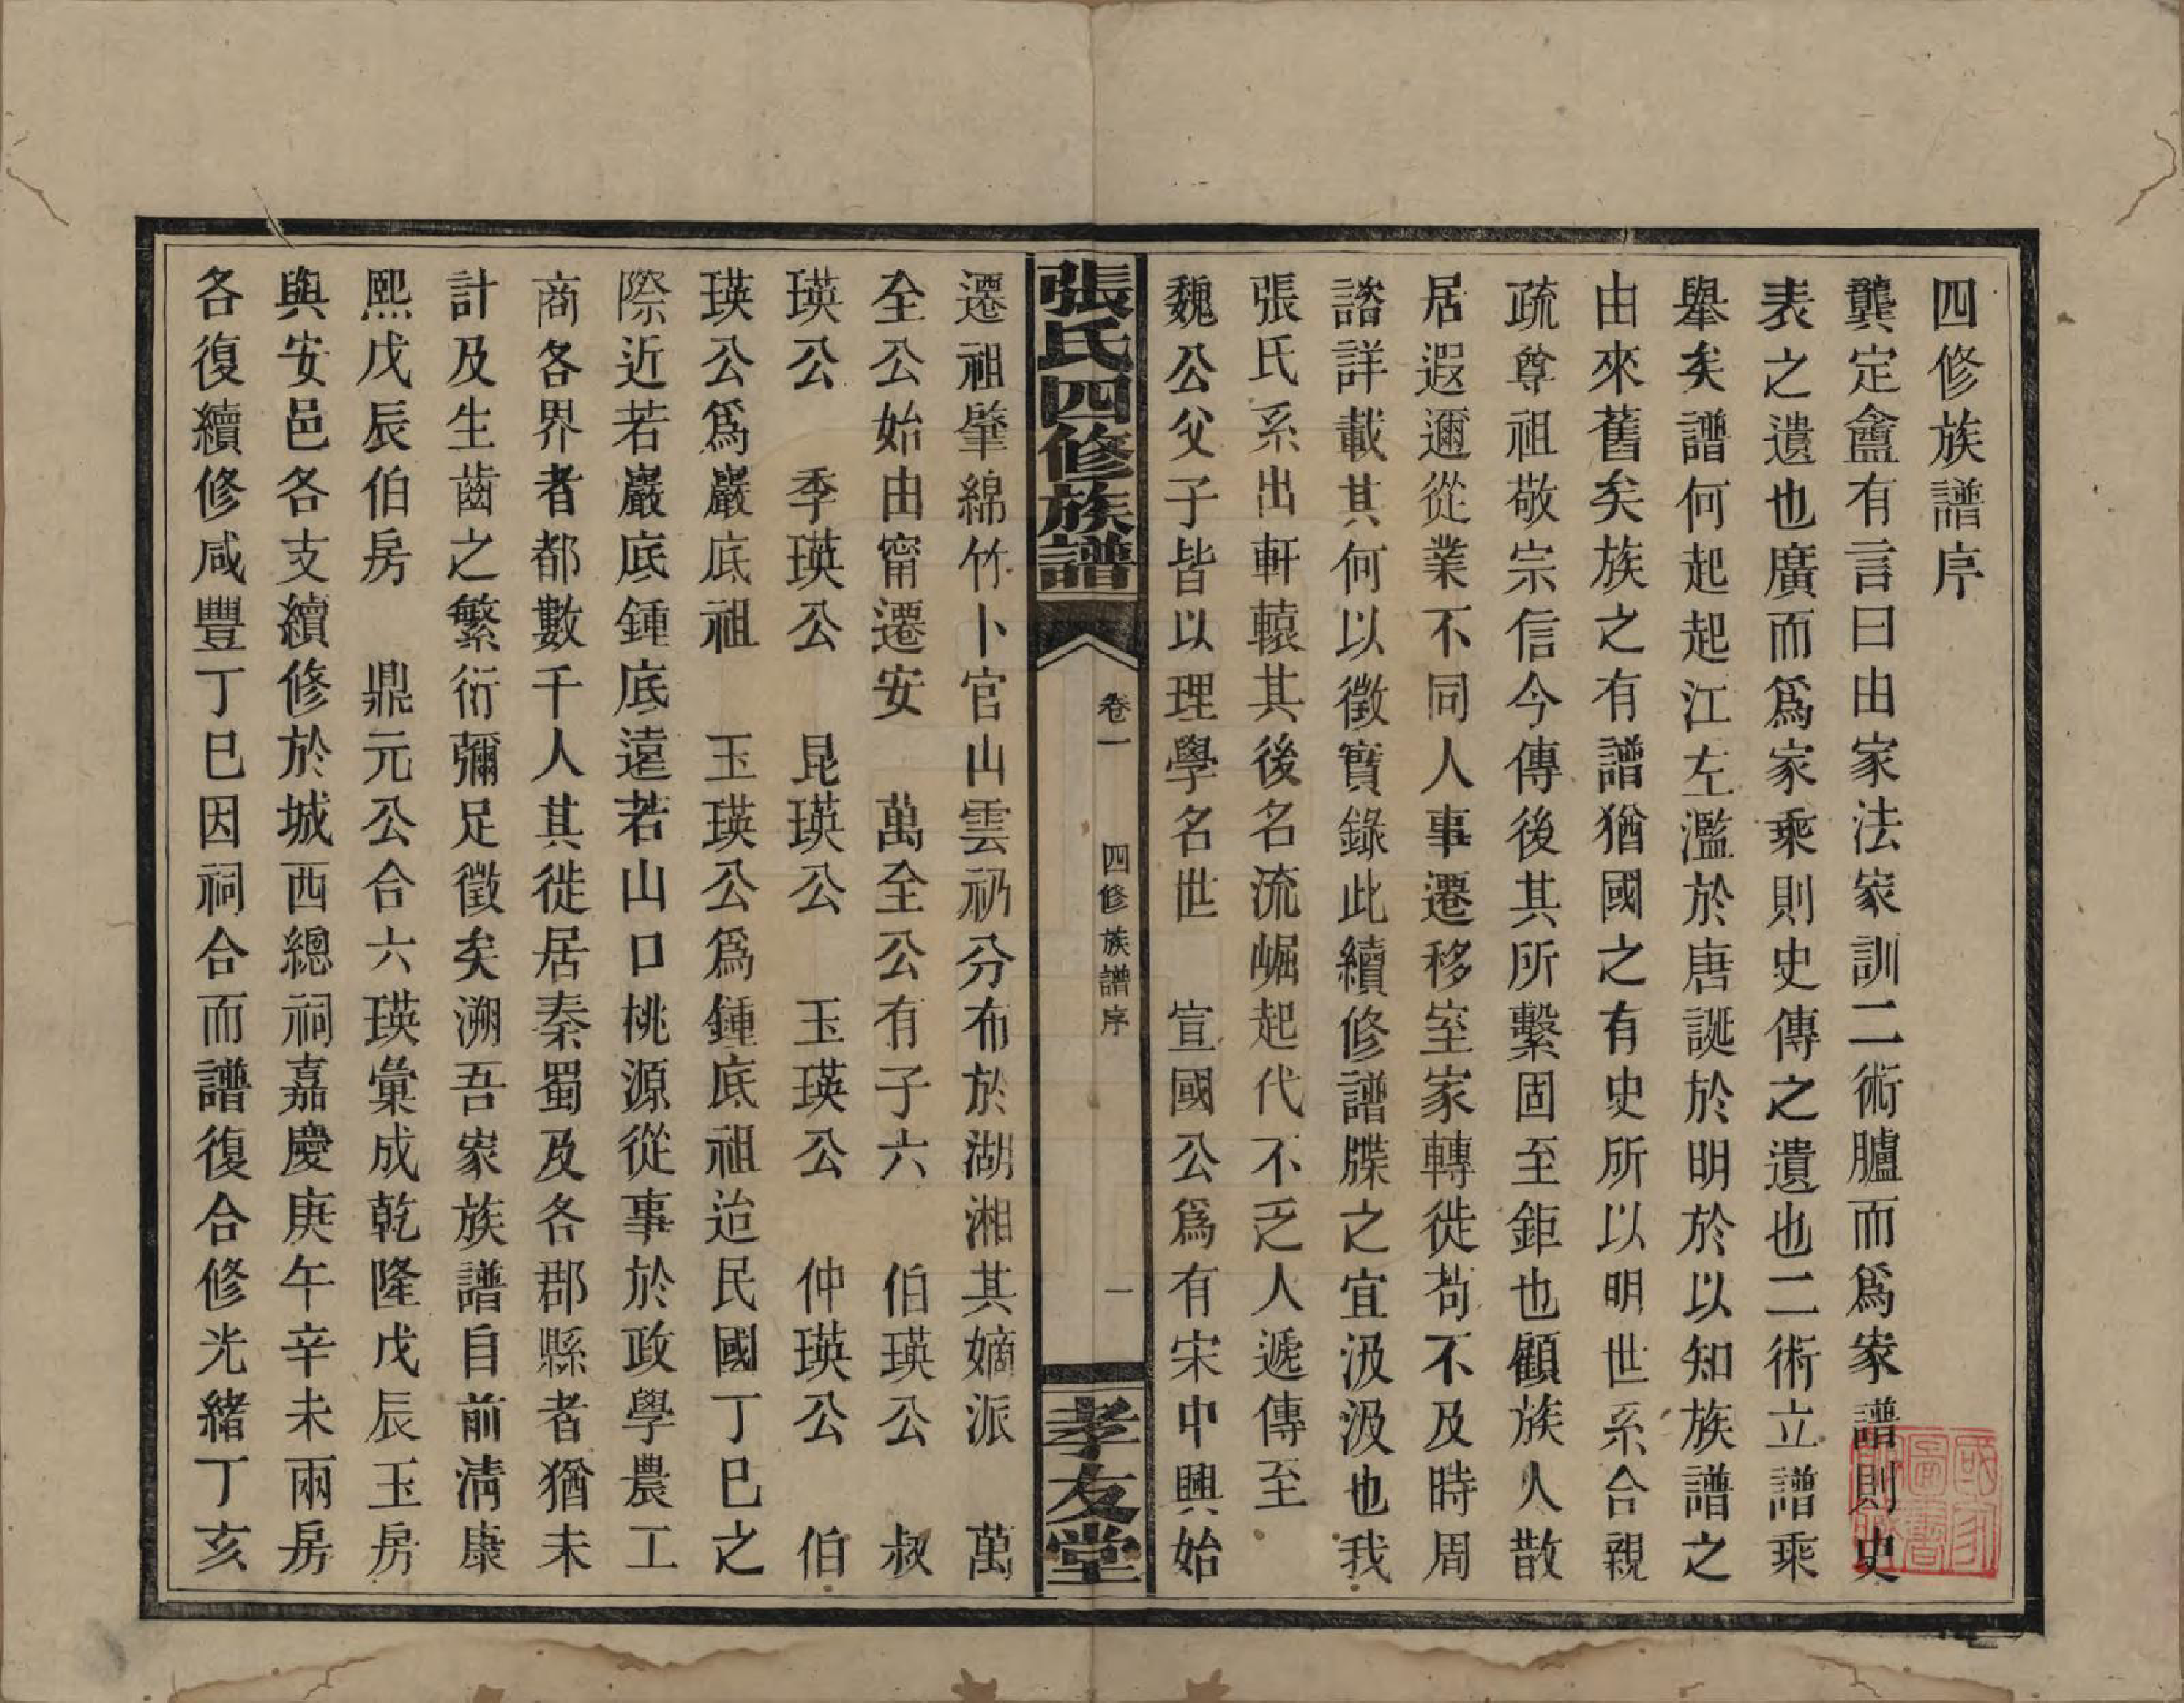 四修族譜序
龔定盦有言曰由家法家訓二術臚而爲家譜則史
表之遺也廣而爲家乘則史傳之遺也二術立譜乘
舉矣譜何起起江左濫於唐誕於明於以知族譜之
由來舊矣族之有譜猶國之有史所以明世系合親
疏尊祖敬宗信今傳後其所繫固至鉅也顧族人散
居遐邇從業不同人事遷移室家轉徙苟不及時周
諮詳載其何以徵實錄此續修譜牒之宜汲汲也我
張氏系出軒轅其後名流崛起代不乏人遞傳至
魏公父子皆以理學名世　宣國公爲有宋中興始
張氏四修族譜
卷一
四修族譜序
一
孝友堂
遷祖肇綿竹卜官山雲礽分布於湖湘其嫡派　萬
全公始由甯遷安　萬全公有子六　伯瑛公　叔
瑛公　季瑛公　昆瑛公　玉瑛公　仲瑛公　伯
瑛公爲巖底祖　玉瑛公爲鍾底祖迨民國丁巳之
際近若巖底鍾底遠若山口桃源從事於政學農工
商各界者都數千人其徙居秦蜀及各郡縣者猶未
計及生齒之繁衍彌足徵矣溯吾家族譜自前清康
熙戊辰伯房　鼎元公合六瑛彙成乾隆戊辰玉房
與安邑各支續修於城西總祠嘉慶庚午辛未兩房
各復續修咸豐丁巳因祠合而譜復合修光緒丁亥